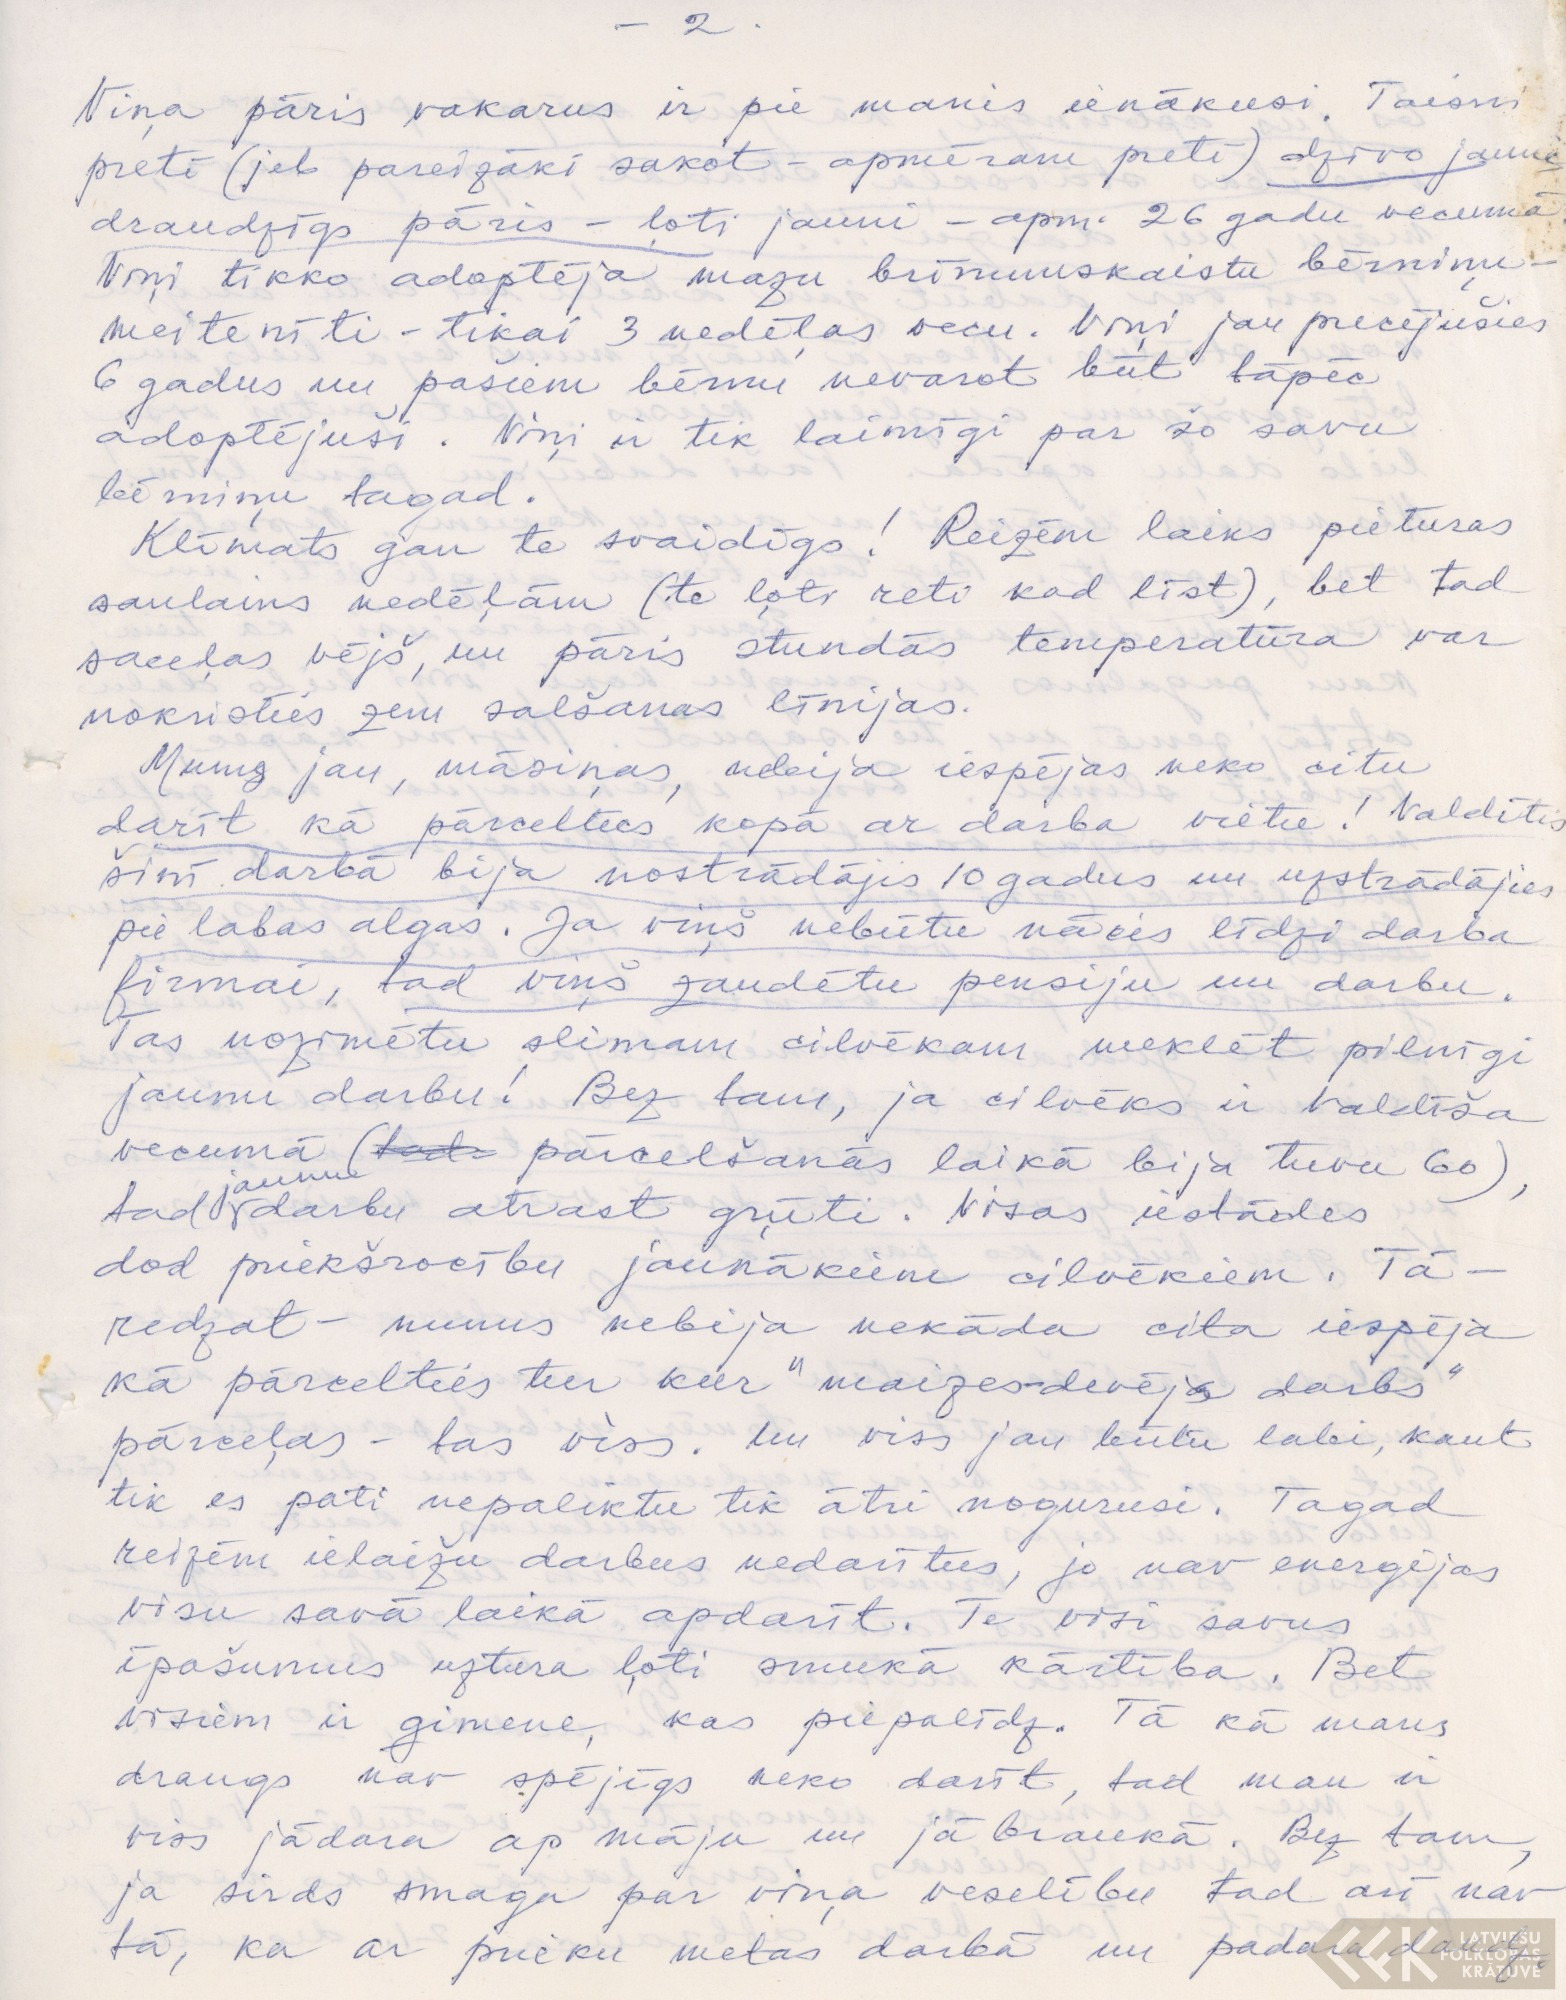 - 2 -
Viņa pāris vakarus ir pie manis ienākusi. Taisni
pretī (jeb pareizāki sakot - apmēram pretī) dzīvo jauns
draudzīgs pāris - ļoti jauni - apm. 26 gadu vecumā
Viņi tikko adoptēja mazu brīnumskaistu bērniņu -
meitenīti - tikai 3 nedēļas vecu. Viņi jau precējušies
6 gadus un pašiem bērnu nevarot būt tāpēc
adoptējuši. Viņi ir tik laimīgi par šo savu
bērniņu tagad.
Klīmats gan te svaidīgs! Reizēm laiks pieturas
saulains nedēļām (te ļoti reti kad līst), bet tad
saceļas vējš, un pāris stundās temperatūra var
nokristies zem salšanas līnijas.
Mums jau, māsiņas, nebija iespējas neko citu
darīt kā pārcelties kopā ar darba vietu! Valdītis
šinī darbā bija nostrādājis 10 gadus un uzstrādājies
pie labas algas. Ja viņš nebūtu nācis līdzi darba
firmai, tad viņš zaudētu pensiju un darbu.
Tas nozīmētu slimam cilvēkam meklēt pilnīgi
jaunu darbu! Bez tam, ja cilvēks ir Valdīša
vecumā (tad pārcelšanās laikā bija tuvu 60),
tad jaunu darbu atrast grūti. Visas iestādes
dod priekšrocību jaunākiem cilvēkiem. Tā -
redzat - mums nebija nekāda cita iespēja
kā pārcelties tur kur "maizes-devējs darbs"
pārceļas - tas viss. Un viss jau būtu labi, kaut
tik es pati nepaliktu tik ātri nogurusi. Tagad
reizēm ielaižu darbus nedarītus, jo nav enerģijas
visu savā laikā apdarīt. Te visi savus
īpašumus uztura ļoti smukā kārtībā. Bet
visiem ir ģimene, kas piepalīdz. Tā kā mans
draugs nav spējīgs neko darīt, tad man ir
viss jādara ap māju un jābraukā. Bez tam,
ja sirds smaga par viņa veselību tad arī nav
tā, ka ar prieku metas darbā un padara daudz.
LATVIEŠU
FOLKLORAS
KRĀTUVE